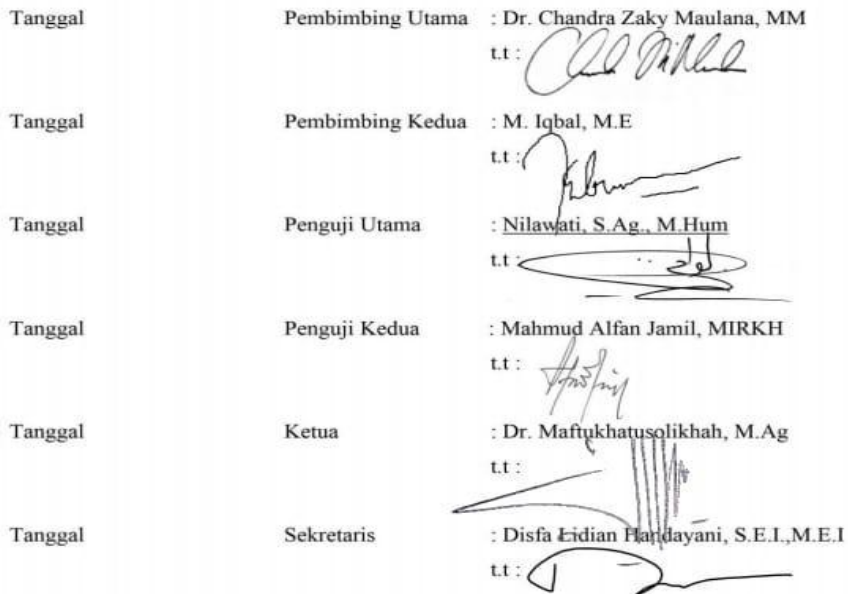 Tanggal Pembimbing Utama : Dr. Chandra Zaky Maulana, MM
t.t :
Tanggal Pembimbing Kedua : M. Iqbal, M.E
t.t :
Tanggal Penguji Utama : Nilawati, S.Ag., M.Hum
t.t :
Tanggal Penguji Kedua : Mahmud Alfan Jamil, MIRKH
t.t :
Tanggal Ketua : Dr. Maftukhatusolikhah, M.Ag
t.t :
Tanggal Sekretaris : Disfa Lidian Handayani, S.E.I.,M.E.I
t.t :